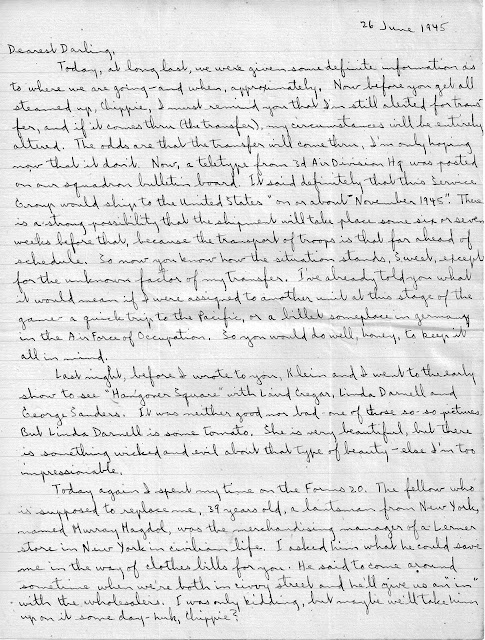 26 June 1945
Dearest Darling,
Today, at long last, we were given some definite information as
to where we are going - and when, approximately. Now before you get all
steamed up, Chippie, I must remind you that I'm still alerted for trans-
fer, and if it comes thru (the transfer), my circumstances will be entirely
altered. The odds are that the transfer will come thru, I'm only hoping
now that it don't. Now, a teletype from 3d Air Division Hq was posted
on our squadron bulletin board. It said definitely that this Service
Group would ship to the United States "on or about November 1945". There
is a strong possibility that the shipment will take place some six or seven
weeks before that, because the transport of troops is that far ahead of
schedule. So now you know how the situation stands, Sweet, except
for the unknown factor of my transfer. I've already told you what
it would mean if I were assigned to another unit at this stage of the
game - a quick trip to the Pacific, or a billet someplace in Germany
in the Air Force of Occupation. So you would do well, honey, to keep it
all in mind.
Last night, before I wrote to you, Klein and I went to the early
show to see "Hangover Square" with Laird Cregar, Linda Darnell and
George Sanders. It was neither good nor bad - one of those so-so pictures.
But Linda Darnell is some tomato. She is very beautiful, but there
is something wicked and evil about that type of beauty - else I'm too
impressionable.
Today again I spent my time on the Forms 20. The fellow who
is supposed to replace me, 39 years old, a lantsman from New York,
named Murray Magdol, was the merchandising manager of a Lerner
store in New York in civilian life. I asked him what he could save
me in the way of clothes bills for you. He said to come around
sometime when we're both in civvy street and he'll give us an "in"
with the wholesalers. I was only kidding, but maybe we'll take him
up on it some day - huh, Chippie?